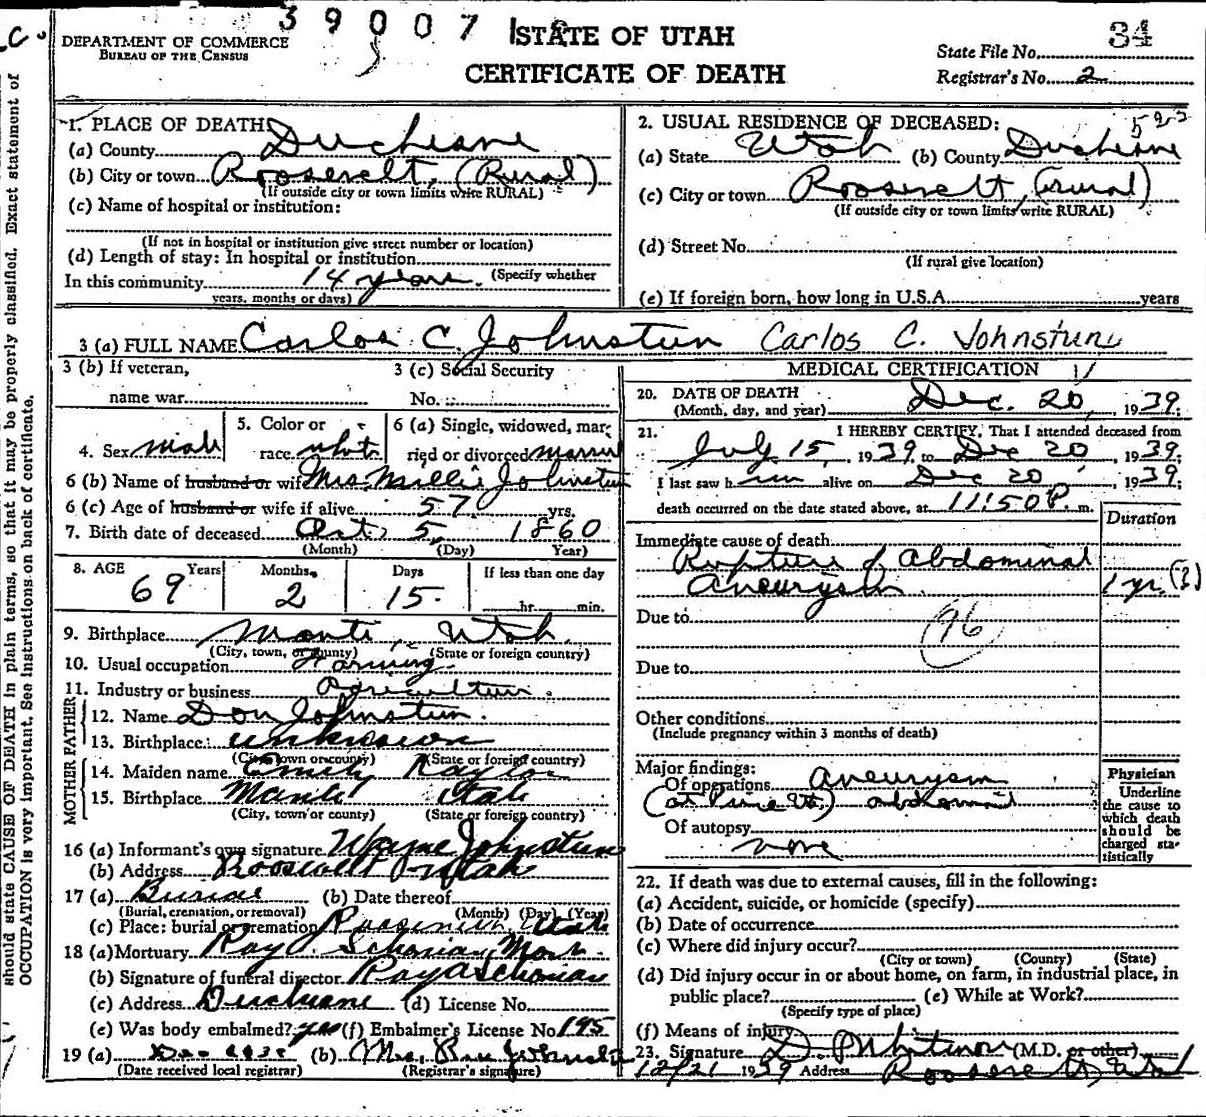 C.
39007
STATE OF UTAH
CERTIFICATE OF DEATH
DEPARTMENT OF COMMERCE
BUREAU OF THE CENSUS
State File No. 34
Registrar's No. 2
should state CAUSE OF DEATH in plain terms, so that it may be properly classified. Exact statement of
OCCUPATION is very important. See instructions on back of certificate.
1. PLACE OF DEATH:
(a) County Duchesne
(b) City or town Roosevelt, (Rural)
(If outside city or town limits write RURAL)
(c) Name of hospital or institution:
(If not in hospital or institution give street number or location)
(d) Length of stay: In hospital or institution
(Specify whether
In this community 14 years.
years, months or days)
2. USUAL RESIDENCE OF DECEASED:
(a) State Utah (b) County Duchesne
(c) City or town Roosevelt, (rural)
(If outside city or town limits write RURAL)
(d) Street No.
(If rural give location)
(e) If foreign born, how long in U.S.A. years
3 (a) FULL NAME Carlos C. Johnstun Carlos C. Johnstun
3 (b) If veteran, 3 (c) Social Security
name war No.
4. Sex male 5. Color or race white 6 (a) Single, widowed, married or divorced married
6 (b) Name of husband or wife Mrs. Millie Johnstun
6 (c) Age of husband or wife if alive 57 yrs.
7. Birth date of deceased Oct. 5, 1860
(Month) (Day) Year)
8. AGE Years Months Days If less than one day
69 2 15 hr. min.
9. Birthplace Manti, Utah
(City, town, or county) (State or foreign country)
10. Usual occupation Farming
11. Industry or business Agriculture.
FATHER
12. Name Don Johnstun.
13. Birthplace unknown
(City town or county) (State or foreign country)
MOTHER
14. Maiden name Emily
15. Birthplace Manti Utah
(City, town or county) (State or foreign country)
16 (a) Informant's own signature Wayne Johnstun
(b) Address Roosevelt Utah
17 (a) Burial (b) Date thereof
(Burial, cremation, or removal) (Month) (Day) (Year)
(c) Place: burial or cremation Utah
18 (a) Mortuary Mort.
(b) Signature of funeral director
(c) Address Duchesne (d) License No.
(e) Was body embalmed? yes (f) Embalmer's License No. 195
19 (a) Dec (b) Mrs.
(Date received local registrar) (Registrar's signature)
MEDICAL CERTIFICATION
20. DATE OF DEATH
(Month, day, and year) Dec. 20, 1939;
21. I HEREBY CERTIFY, That I attended deceased from
July 15, 1939 to Dec 20, 1939;
I last saw him alive on Dec 20, 1939;
death occurred on the date stated above, at 11:50 P. m.
Duration
Immediate cause of death
Rupture of Abdominal
Aneurysm 1 yr. (?)
Due to
96
Due to
Other conditions
(Include pregnancy within 3 months of death)
Major findings:
Of operations aneurysm
abdominal
Of autopsy
none
Physician
Underline
the cause to
which death
should be
charged sta-
tistically
22. If death was due to external causes, fill in the following:
(a) Accident, suicide, or homicide (specify)
(b) Date of occurrence
(c) Where did injury occur?
(City or town) (County) (State)
(d) Did injury occur in or about home, on farm, in industrial place, in
public place? (e) While at Work?
(Specify type of place)
(f) Means of injury
23. Signature (M.D. or other)
12/21 1939 Address Roosevelt, Utah